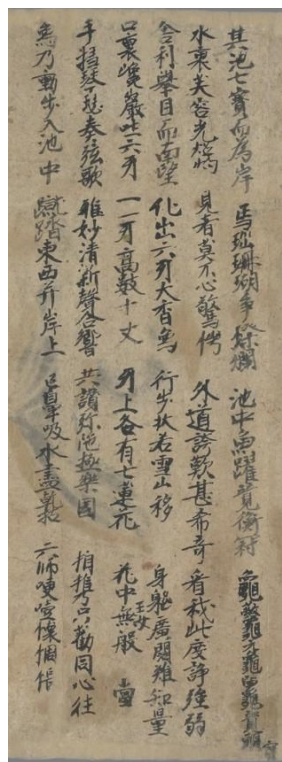 其池七寶而為岸 馬瑙珊瑚爭燦爛 池中魚躍競銜 龜鱉黿鼉
水裏芙容光照灼 見者莫不心驚愕 外道誇歎甚希奇 看我此度諍強弱
舍利舉目而南望 化出六牙大香象 行步狀若雪山移 身軀廣闊難知量
口裏嶄巖吐六牙 一一牙高數十丈 牙上各有七蓮花 花中玉女無般當
手搊琴瑟奏弦歌 雅妙清新聲合響 共讚彌陀極樂國 相攜只勸同心往
象乃動步入池中 蹴踏東西并岸上 已鼻吸水盡乾枯 六師哽噎懷惆悵